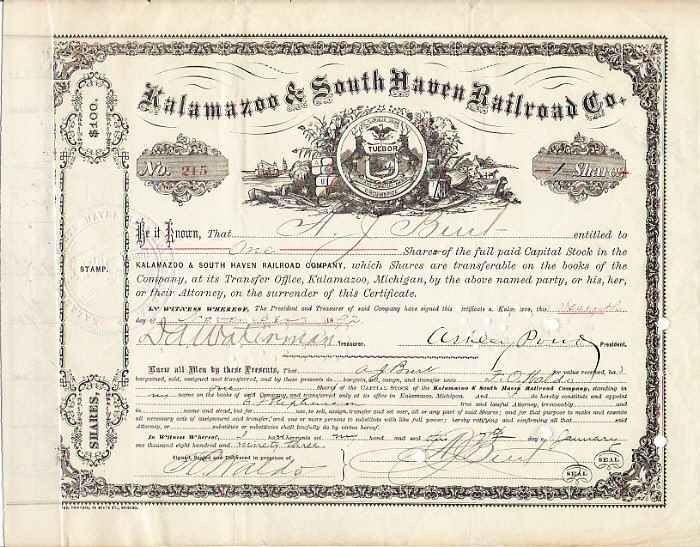 Kalamazoo & South Haven Railroad Co.
$100.
TUEBOR
No. 215
1 Shares
Be it Known, That A. J. Burt entitled to
One Shares of the full paid Capital Stock in the
KALAMAZOO & SOUTH HAVEN RAILROAD COMPANY, which Shares are transferable on the books of the
Company, at its Transfer Office, Kalamazoo, Michigan, by the above named party, or his, her,
or their Attorney, on the surrender of this Certificate.
STAMP.
In Witness Whereof, The President and Treasurer of said Company have signed this Certificate at Kalamazoo, this
day of
D A Waterman Treasurer. Ashley Pond President.
Know all Men by these Presents, That A J Burt for value received, has
bargained, sold, assigned and transferred, and by these presents do bargain, sell, assign, and transfer unto
One Shares of the CAPITAL STOCK of the Kalamazoo & South Haven Railroad Company, standing in
my name on the books of said Company, and transferred only at its office in Kalamazoo, Michigan, and do hereby constitute and appoint
true and lawful Attorney, irrevocably, and
name and stead, but for use, to sell, assign, transfer and set over, all or any part of said Shares; and for that purpose to make and execute
all necessary acts of assignment and transfer, and one or more persons to substitute with like full power; hereby ratifying and confirming all that said
Attorney, or substitute or substitutes shall lawfully do by virtue hereof.
SHARES,
In Witness Whereof, I have hereunto set my hand and seal this day of January
one thousand eight hundred and ninety three
Signed, Sealed and Delivered in presence of
A J Burt SEAL
SEAL